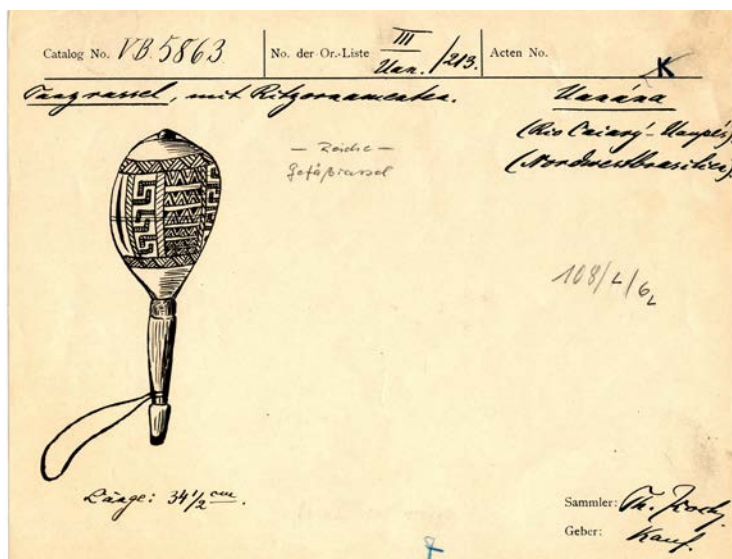 Catalog No. VB. 5863. No. der Or.-Liste III Uan. /213. Acten No. K
Tanzrassel, mit Ritzornamenten. Uanána
(Rio Caiarý-Uaupés).
(Nordwestbrasilien).
Gefäßrassel
108/L/6L
Länge: 34 1/2 cm.
Sammler: Th. Koch.
Geber: Kauf.